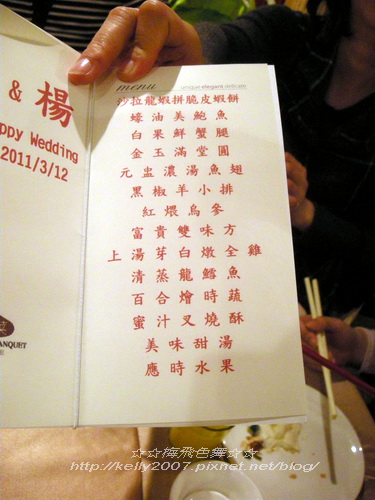 & 楊
ppy Wedding
2011/3/12
ANQUET
menu
unique elegant delicate
沙拉龍蝦拼脆皮蝦餅
蠔油美鮑魚
白果鮮蟹腿
金玉滿堂圓
元盅濃湯魚翅
黑椒羊小排
紅煨烏參
富貴雙味方
上湯芽白燉全雞
清蒸龍鱈魚
百合燴時蔬
蜜汁叉燒酥
美味甜湯
應時水果
☆☆梅飛色舞☆☆
http://kelly2007.pixnet.net/blog/